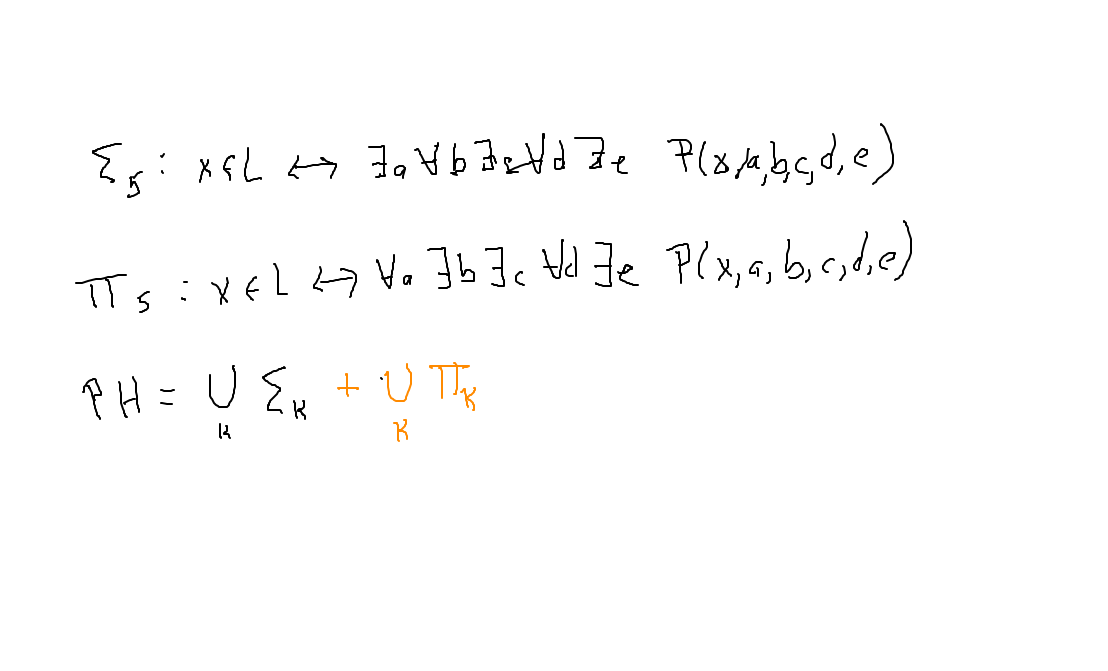 Σ₅ : x ∈ L ↔ ∃a ∀b ∃c ∀d ∃e P(x,a,b,c,d,e)
Π₅ : x ∈ L ↔ ∀a ∃b ∃c ∀d ∃e P(x,a,b,c,d,e)
PH = ∪ₖ Σₖ + ∪ₖ Πₖ